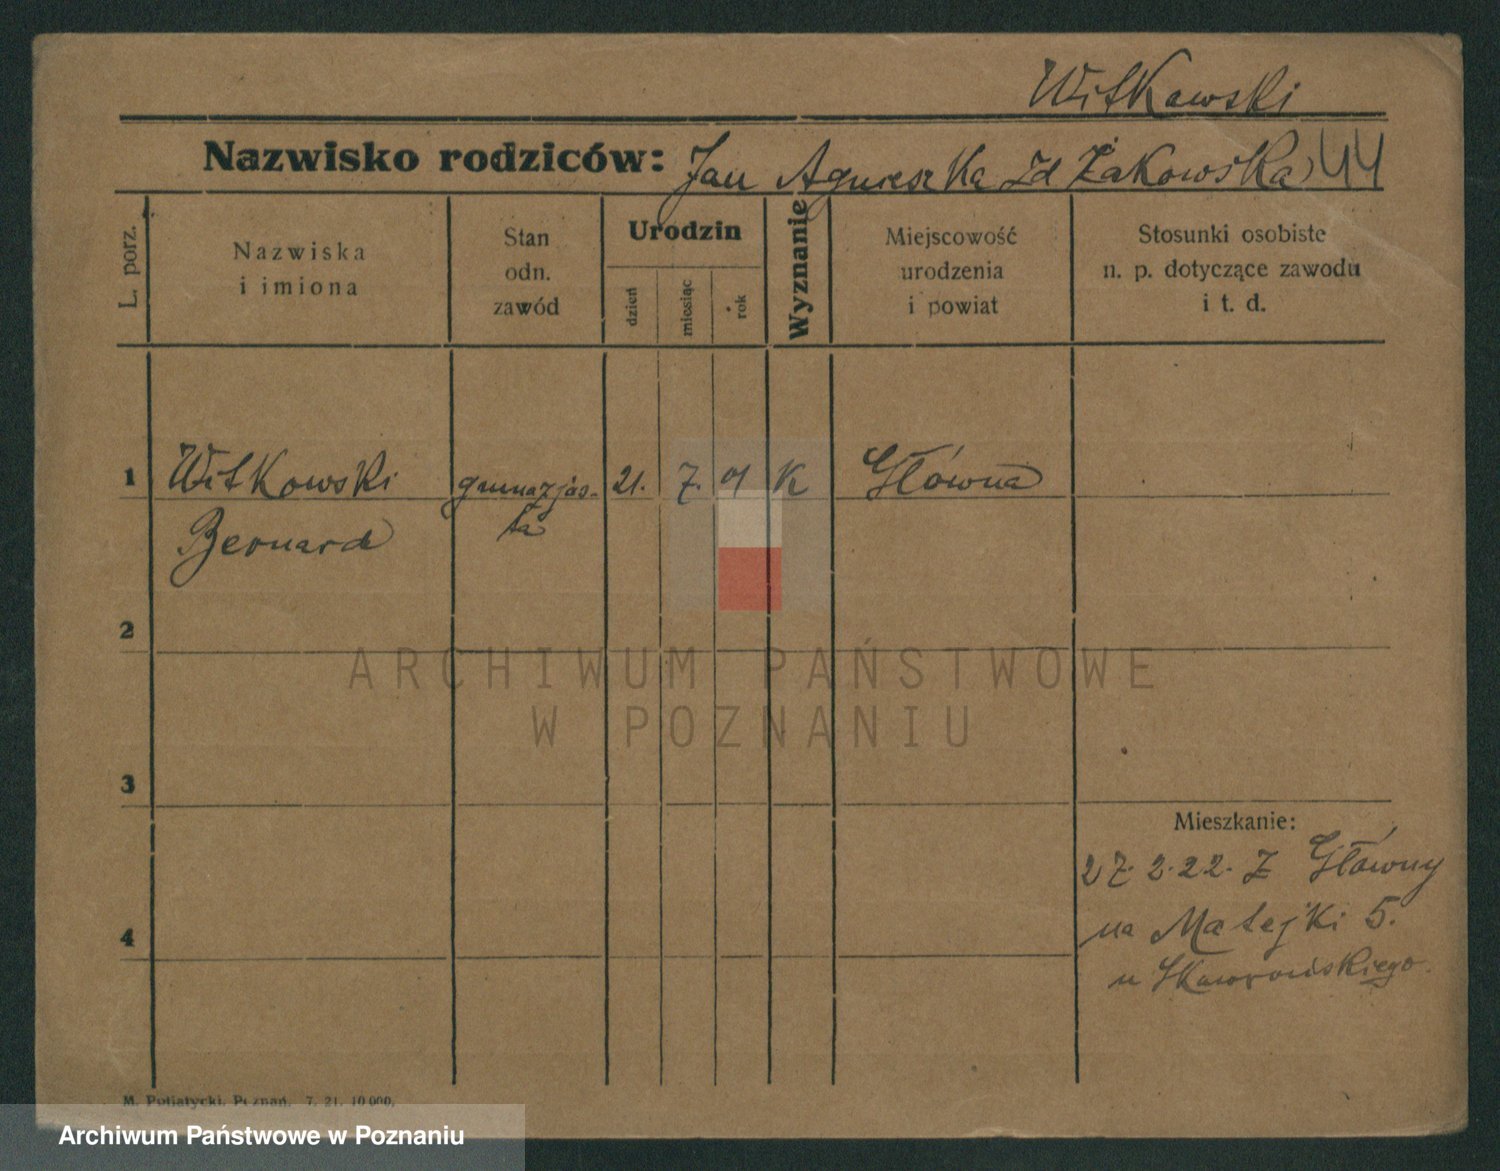 Witkowski
Nazwisko rodziców: Jan Agnieszka zd Żakowska 44
L. porz.
Nazwiska
i imiona
Stan
odn.
zawód
Urodzin
dzień
miesiąc
rok
Wyznanie
Miejscowość
urodzenia
i powiat
Stosunki osobiste
n. p. dotyczące zawodu
i t. d.
1 Witkowski gmnazjas- 21. 7. 01 K Główna
Bernard ta
2
ARCHIWUM PAŃSTWOWE
W POZNANIU
3
Mieszkanie:
27. 2. 22. Z Główny
na Matejki 5.
4
u Skowrońskiego.
M. Putiatycki, Poznań. 7. 21. 10 000.
Archiwum Państwowe w Poznaniu